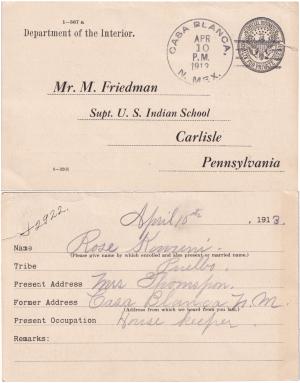 1-567 a
Department of the Interior.
CASA BLANCA,
APR
10
P.M.
1913
N. MEX.
Mr. M. Friedman
Supt. U. S. Indian School
Carlisle
Pennsylvania
April 10th, 1913.
Name Rose
(Please give name by which enrolled and also present or married name.)
Tribe Pueblo.
Present Address Mrs Thompson.
Former Address Casa Blanca N.M.
(Address from which we heard from you last.)
Present Occupation House keeper.
Remarks: